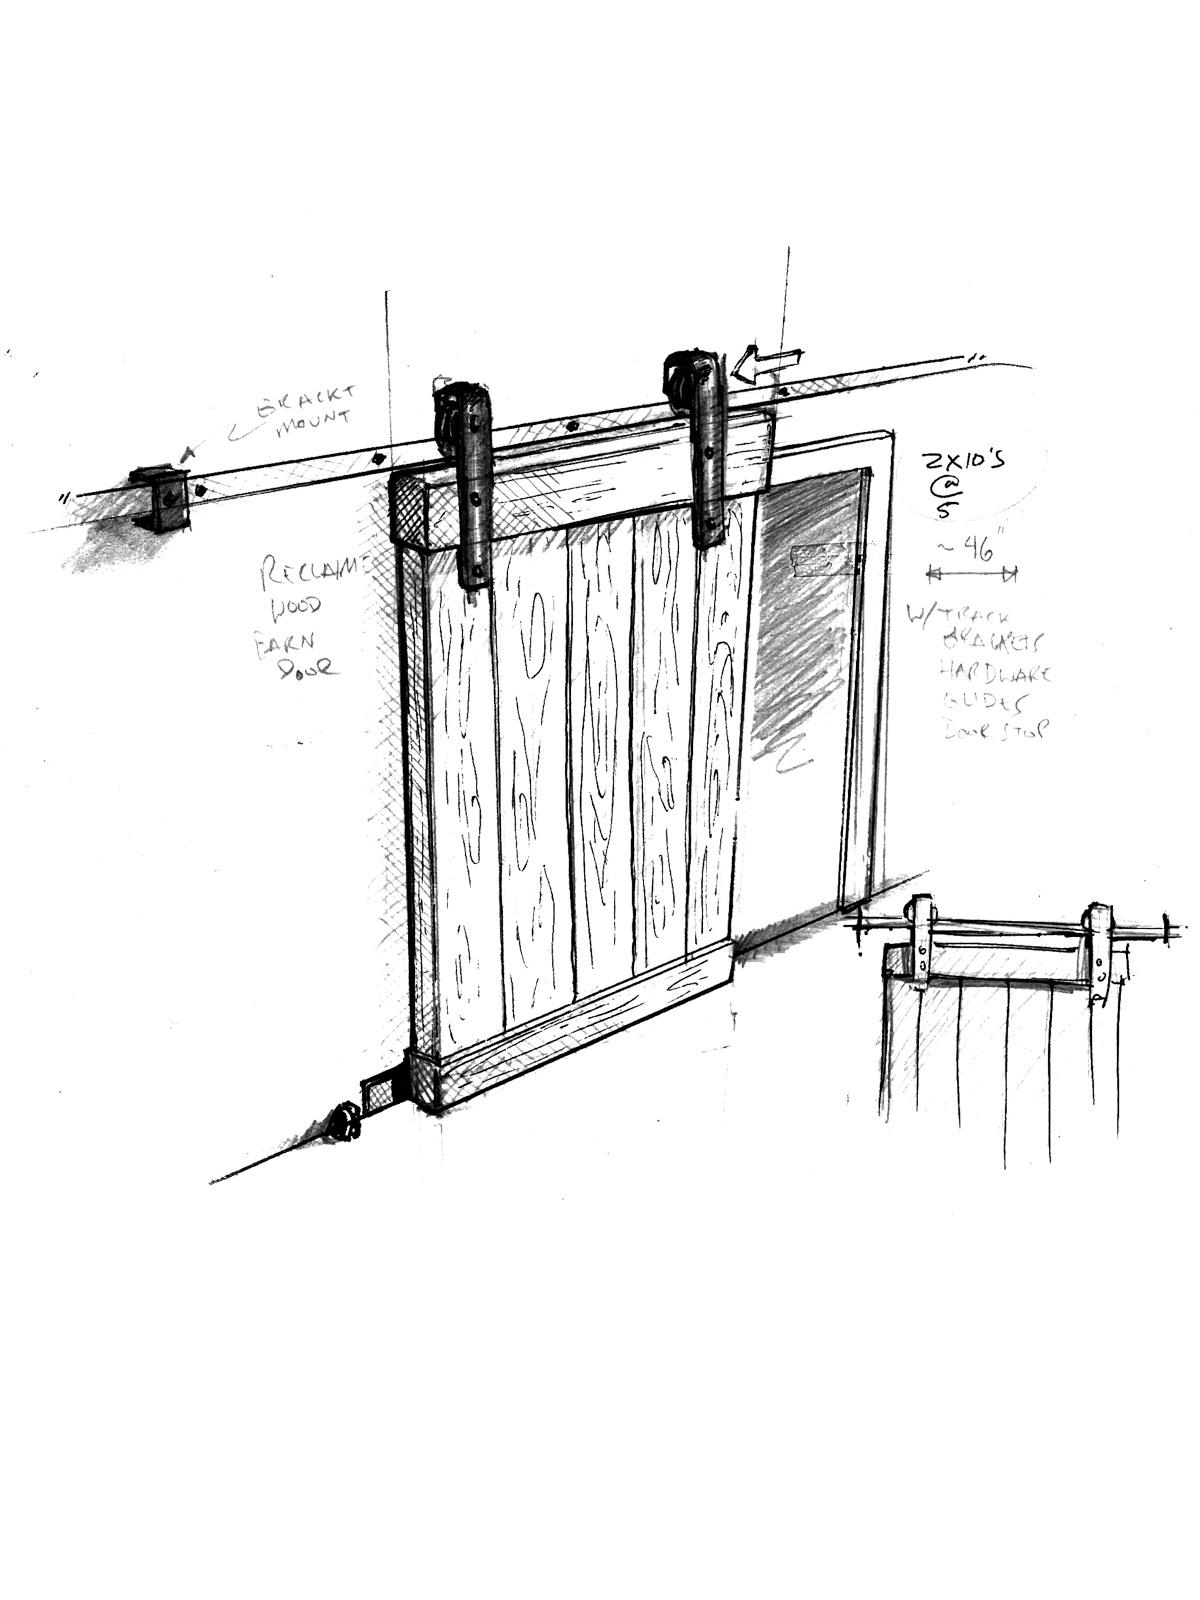 BRACKT
MOUNT
RECLAIM
WOOD
BARN
DOOR
2X10'S
@
5
~ 46"
W/TRACK
BRACKETS
HARDWARE
GLIDES
DOOR STOP